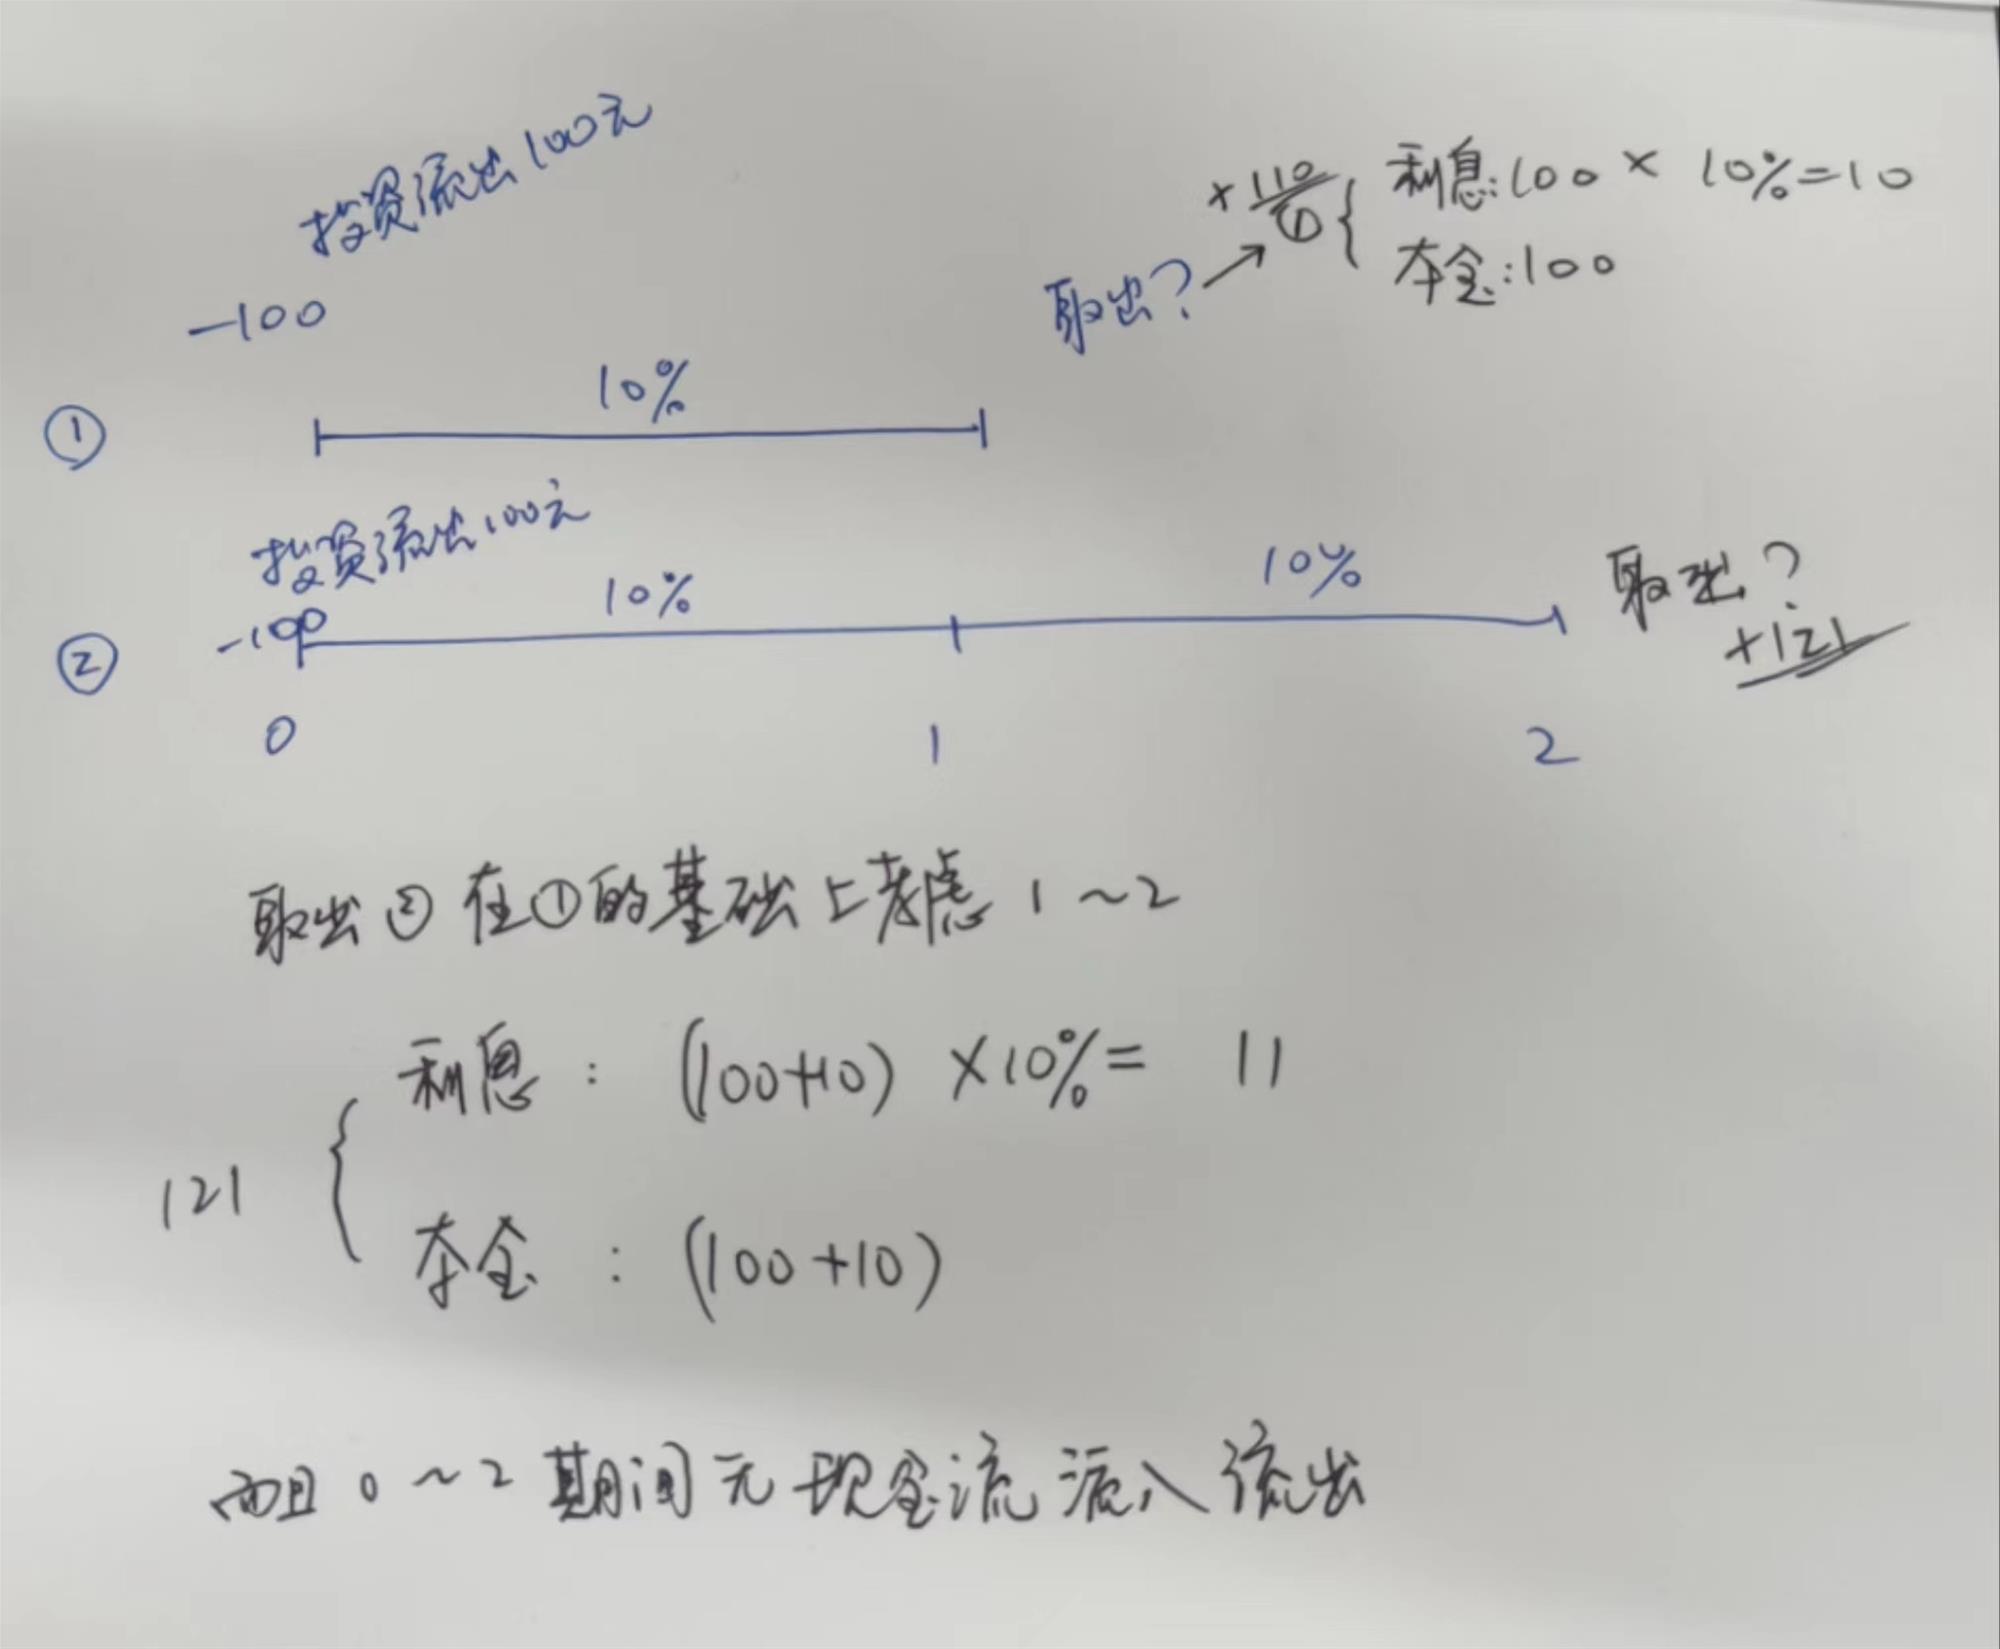 投资流出100元
+110 利息:100 × 10%=10
① 本金:100
取出?
-100
10%
①
投资流出100元
10%
10%
取出?
+121
② -100
0 1 2
取出② 在①的基础上考虑 1~2
利息 : (100+10) ×10%= 11
121
本金 : (100+10)
而且 0~2 期间无现金流流入流出